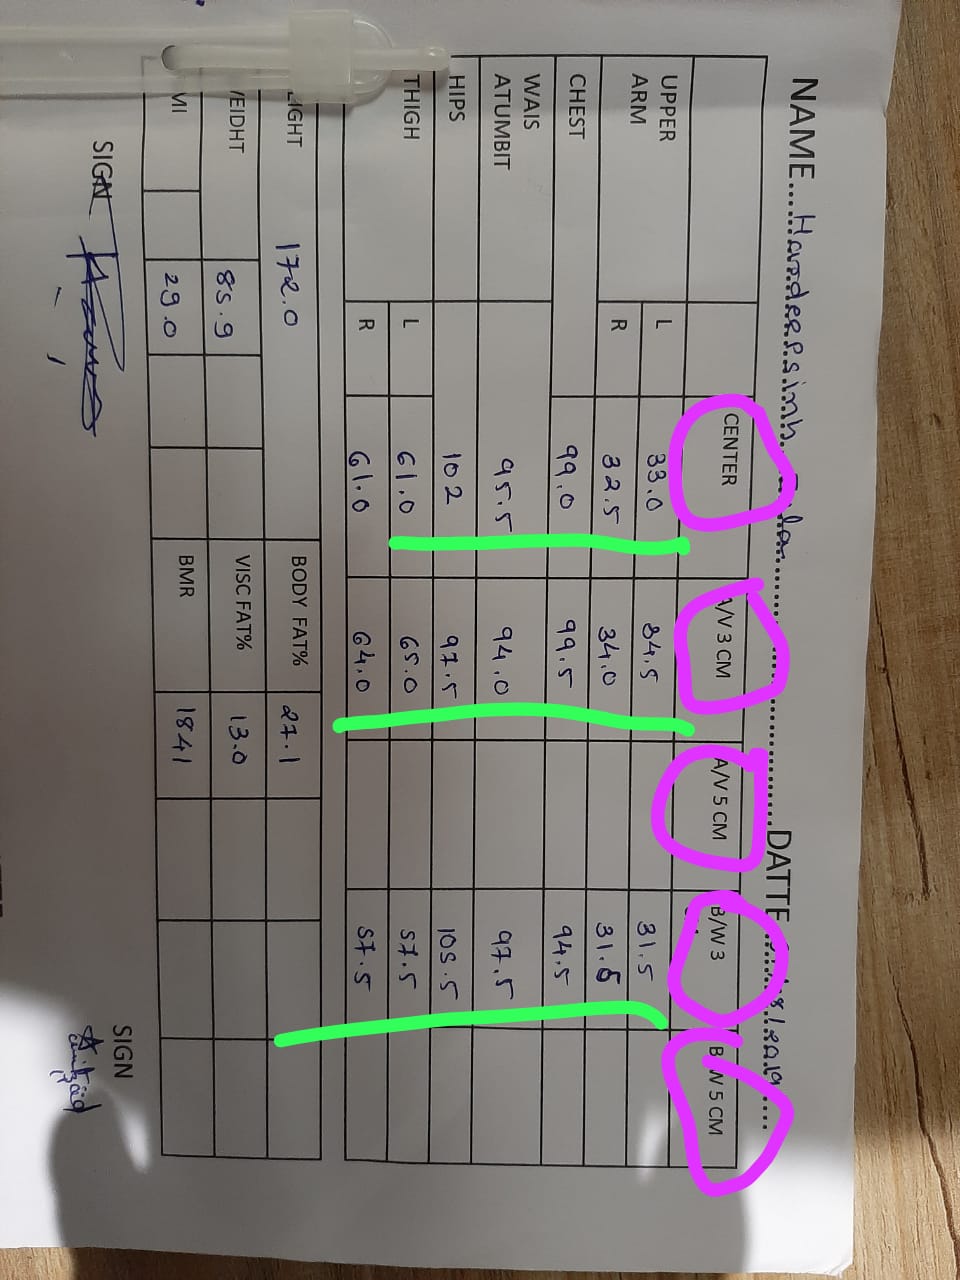 NAME....
DATTE
CENTER A/V 3 CM A/V 5 CM B/W 3 B/W 5 CM
UPPER ARM L 33.0 34.5 31.5
R 32.5 34.0 31.5
CHEST 99.0 99.5 94.5
WAIS ATUMBIT 95.5 94.0 97.5
HIPS 102 97.5 105.5
THIGH L 61.0 65.0 57.5
R 61.0 64.0 57.5
IGHT 172.0 BODY FAT% 27.1
EIDHT 85.9 VISC FAT% 13.0
MI 29.0 BMR 1841
SIGN
SIGN